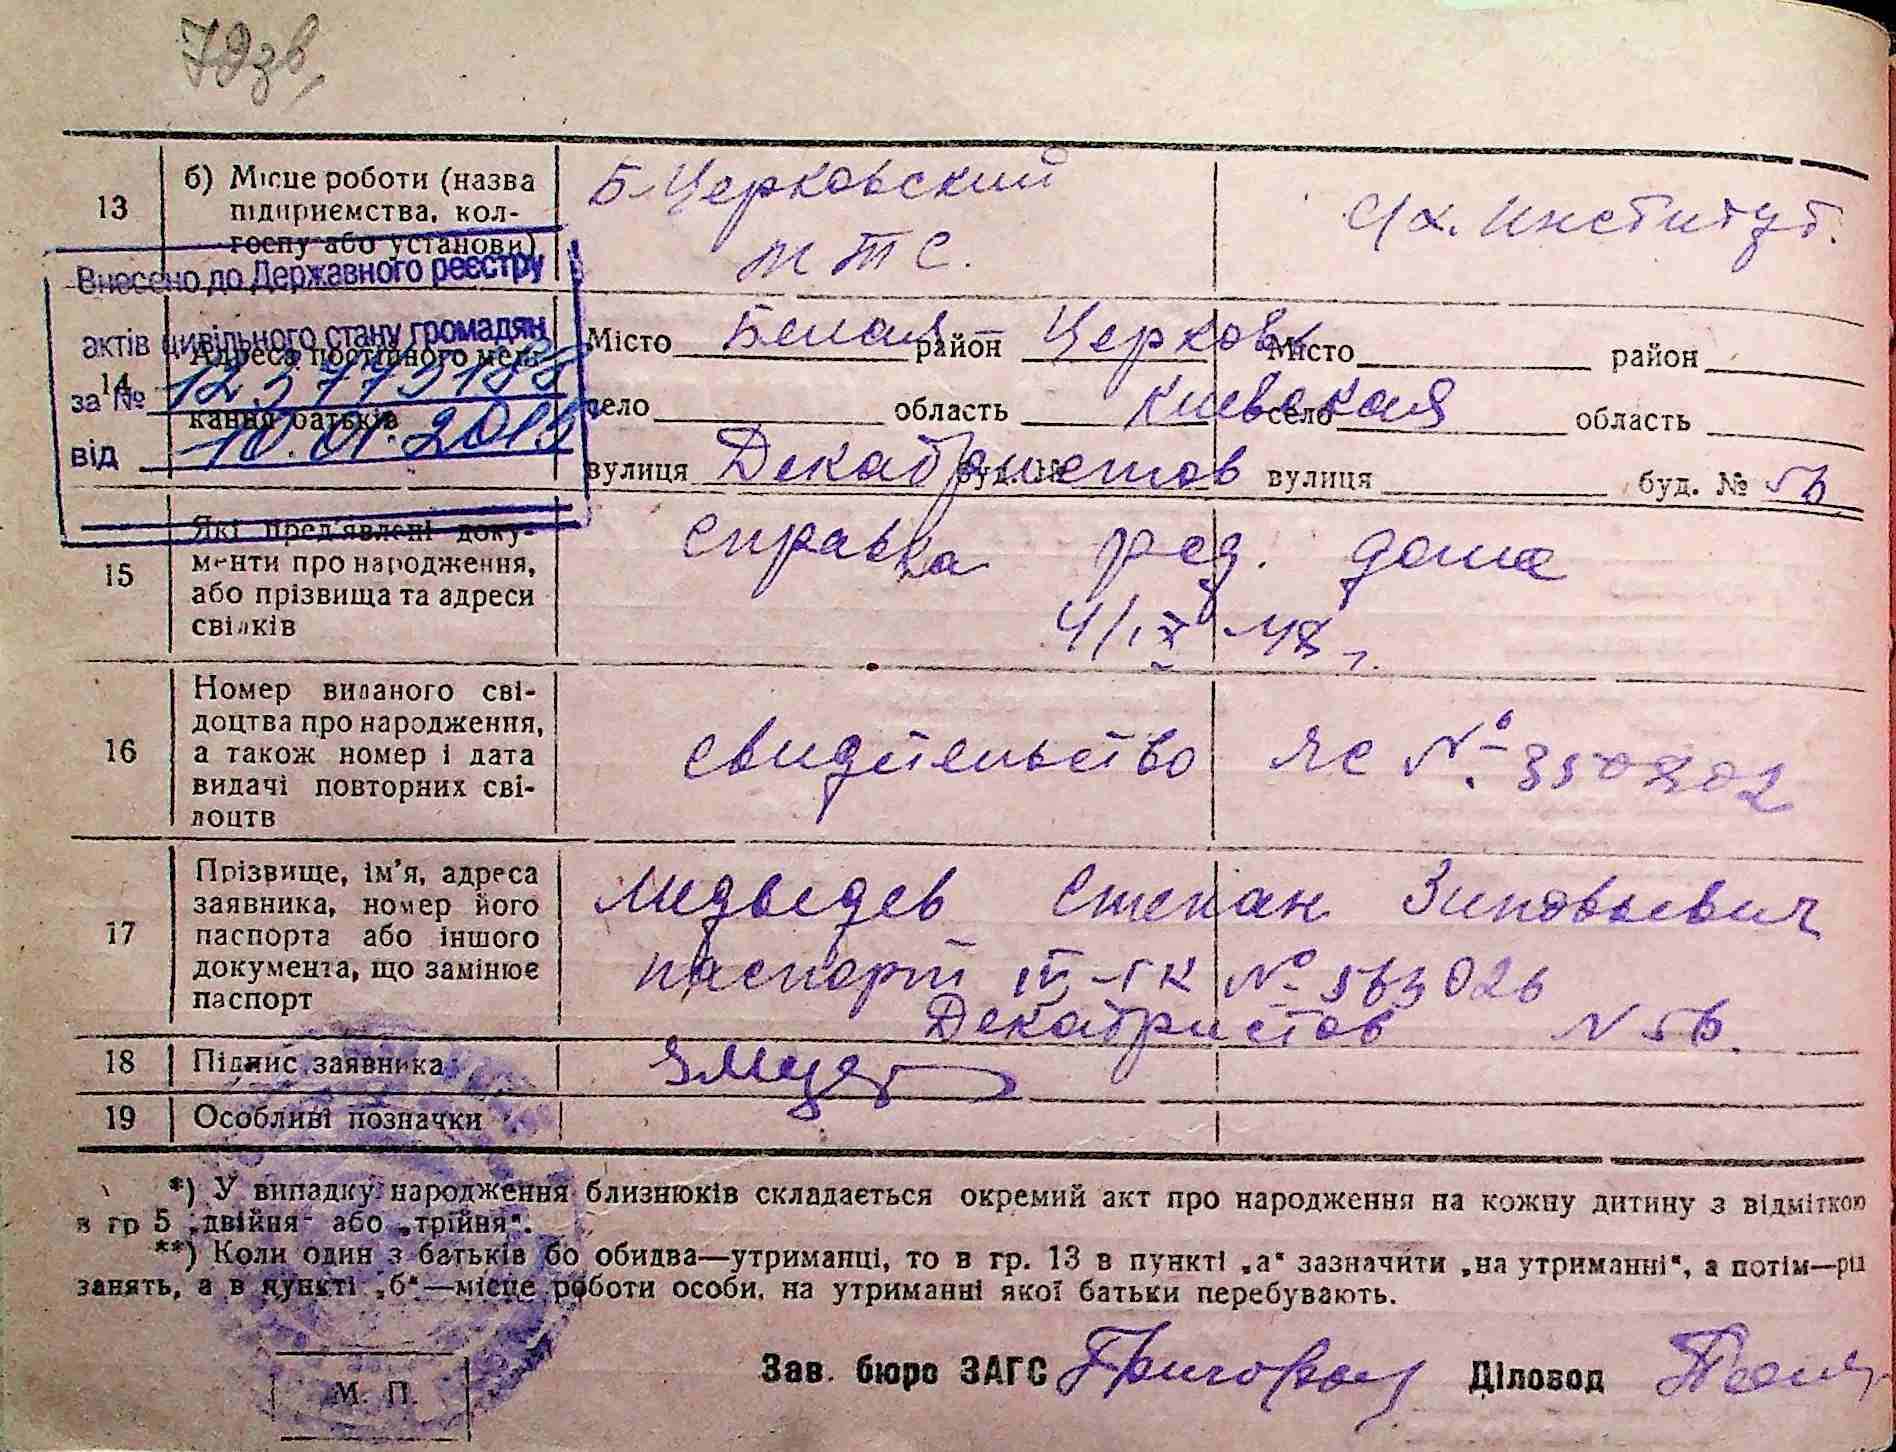 13
б) Місце роботи (назва
підприємства, кол-
госпу або установи)
Б-Церковский
МТС.
С/х. Институт.
Внесено до Державного реєстру
актів цивільного стану громадян
за №
від 10.01.2013
14
Адреса постійного меш-
кання батьків
Місто Белая район Церковь Місто район
село область Киевская село область
вулиця Декабристов буд. № вулиця буд. № 56
15
Які пред'явлені доку-
менти про народження,
або прізвища та адреси
свідків
Справка род. дома
4/IX 48 г.
16
Номер виданого сві-
доцтва про народження,
а також номер і дата
видачі повторних сві-
доцтв
свидетельство ЯС № 350802
17
Прізвище, ім'я, адреса
заявника, номер його
паспорта або іншого
документа, що замінює
паспорт
Медведев Степан Зиновьевич
паспорт № 563026
Декабристов N 56.
18
Підпис заявника
19
Особливі позначки
*) У випадку народження близнюків складається окремий акт про народження на кожну дитину з відміткою
в гр 5 „двійня" або „трійня".
**) Коли один з батьків бо обидва—утриманці, то в гр. 13 в пункті „а" зазначити „на утриманні", а потім—рід
занять, а в пункті „б"—місце роботи особи, на утриманні якої батьки перебувають.
Зав. бюро ЗАГС Діловод
М. П.